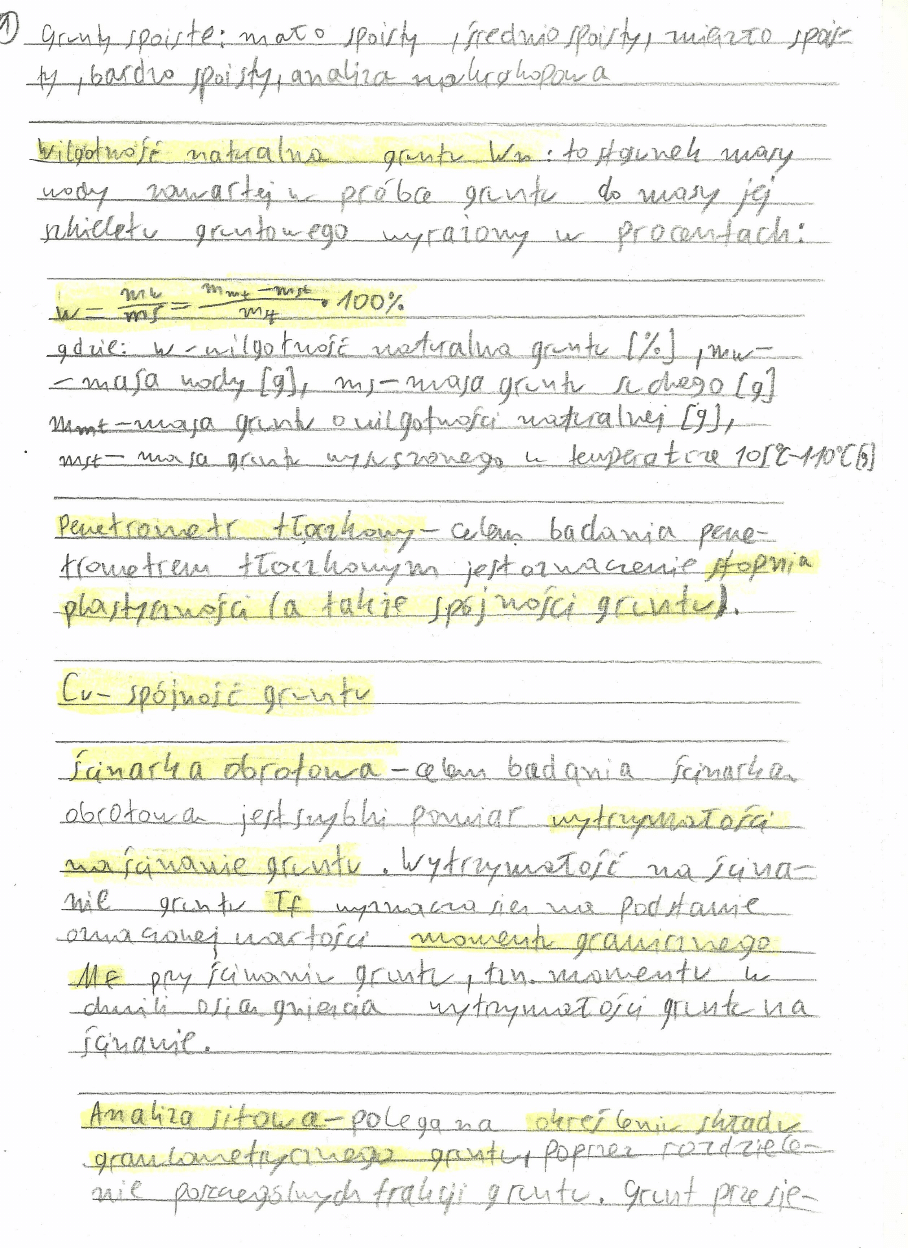 1) Grunty spoiste: mało spoisty, średnio spoisty, zwięzło spois-
ty, bardzo spoisty, analiza makroskopowa
Wilgotność naturalna gruntu Wn: to stosunek masy
wody zawartej w próbce gruntu do masy jej
szkieletu gruntowego wyrażony w procentach:
w = mw/ms = (mmt - mst)/mst · 100%
gdzie: w - wilgotność naturalna gruntu [%], mw-
- masa wody [g], ms - masa gruntu suchego [g]
mmt - masa gruntu o wilgotności naturalnej [g],
mst - masa gruntu wysuszonego w temperaturze 105°C-110°C [g]
Penetrometr tłoczkowy - celem badania pene-
trometrem tłoczkowym jest oznaczenie stopnia
plastyczności (a także spójności gruntu).
Cu - spójność gruntu
Ścinarka obrotowa - celem badania ścinarką
obrotową jest szybki pomiar wytrzymałości
na ścinanie gruntu. Wytrzymałość na ścina-
nie gruntu Tf wyznacza się na podstawie
oznaczonej wartości momentu granicznego
Mf przy ścinaniu gruntu, tzn. momentu w
chwili osiągnięcia wytrzymałości gruntu na
ścinanie.
Analiza sitowa - polega na określeniu składu
granulometrycznego gruntu, poprzez rozdziele-
nie poszczególnych frakcji gruntu. Grunt przesie-